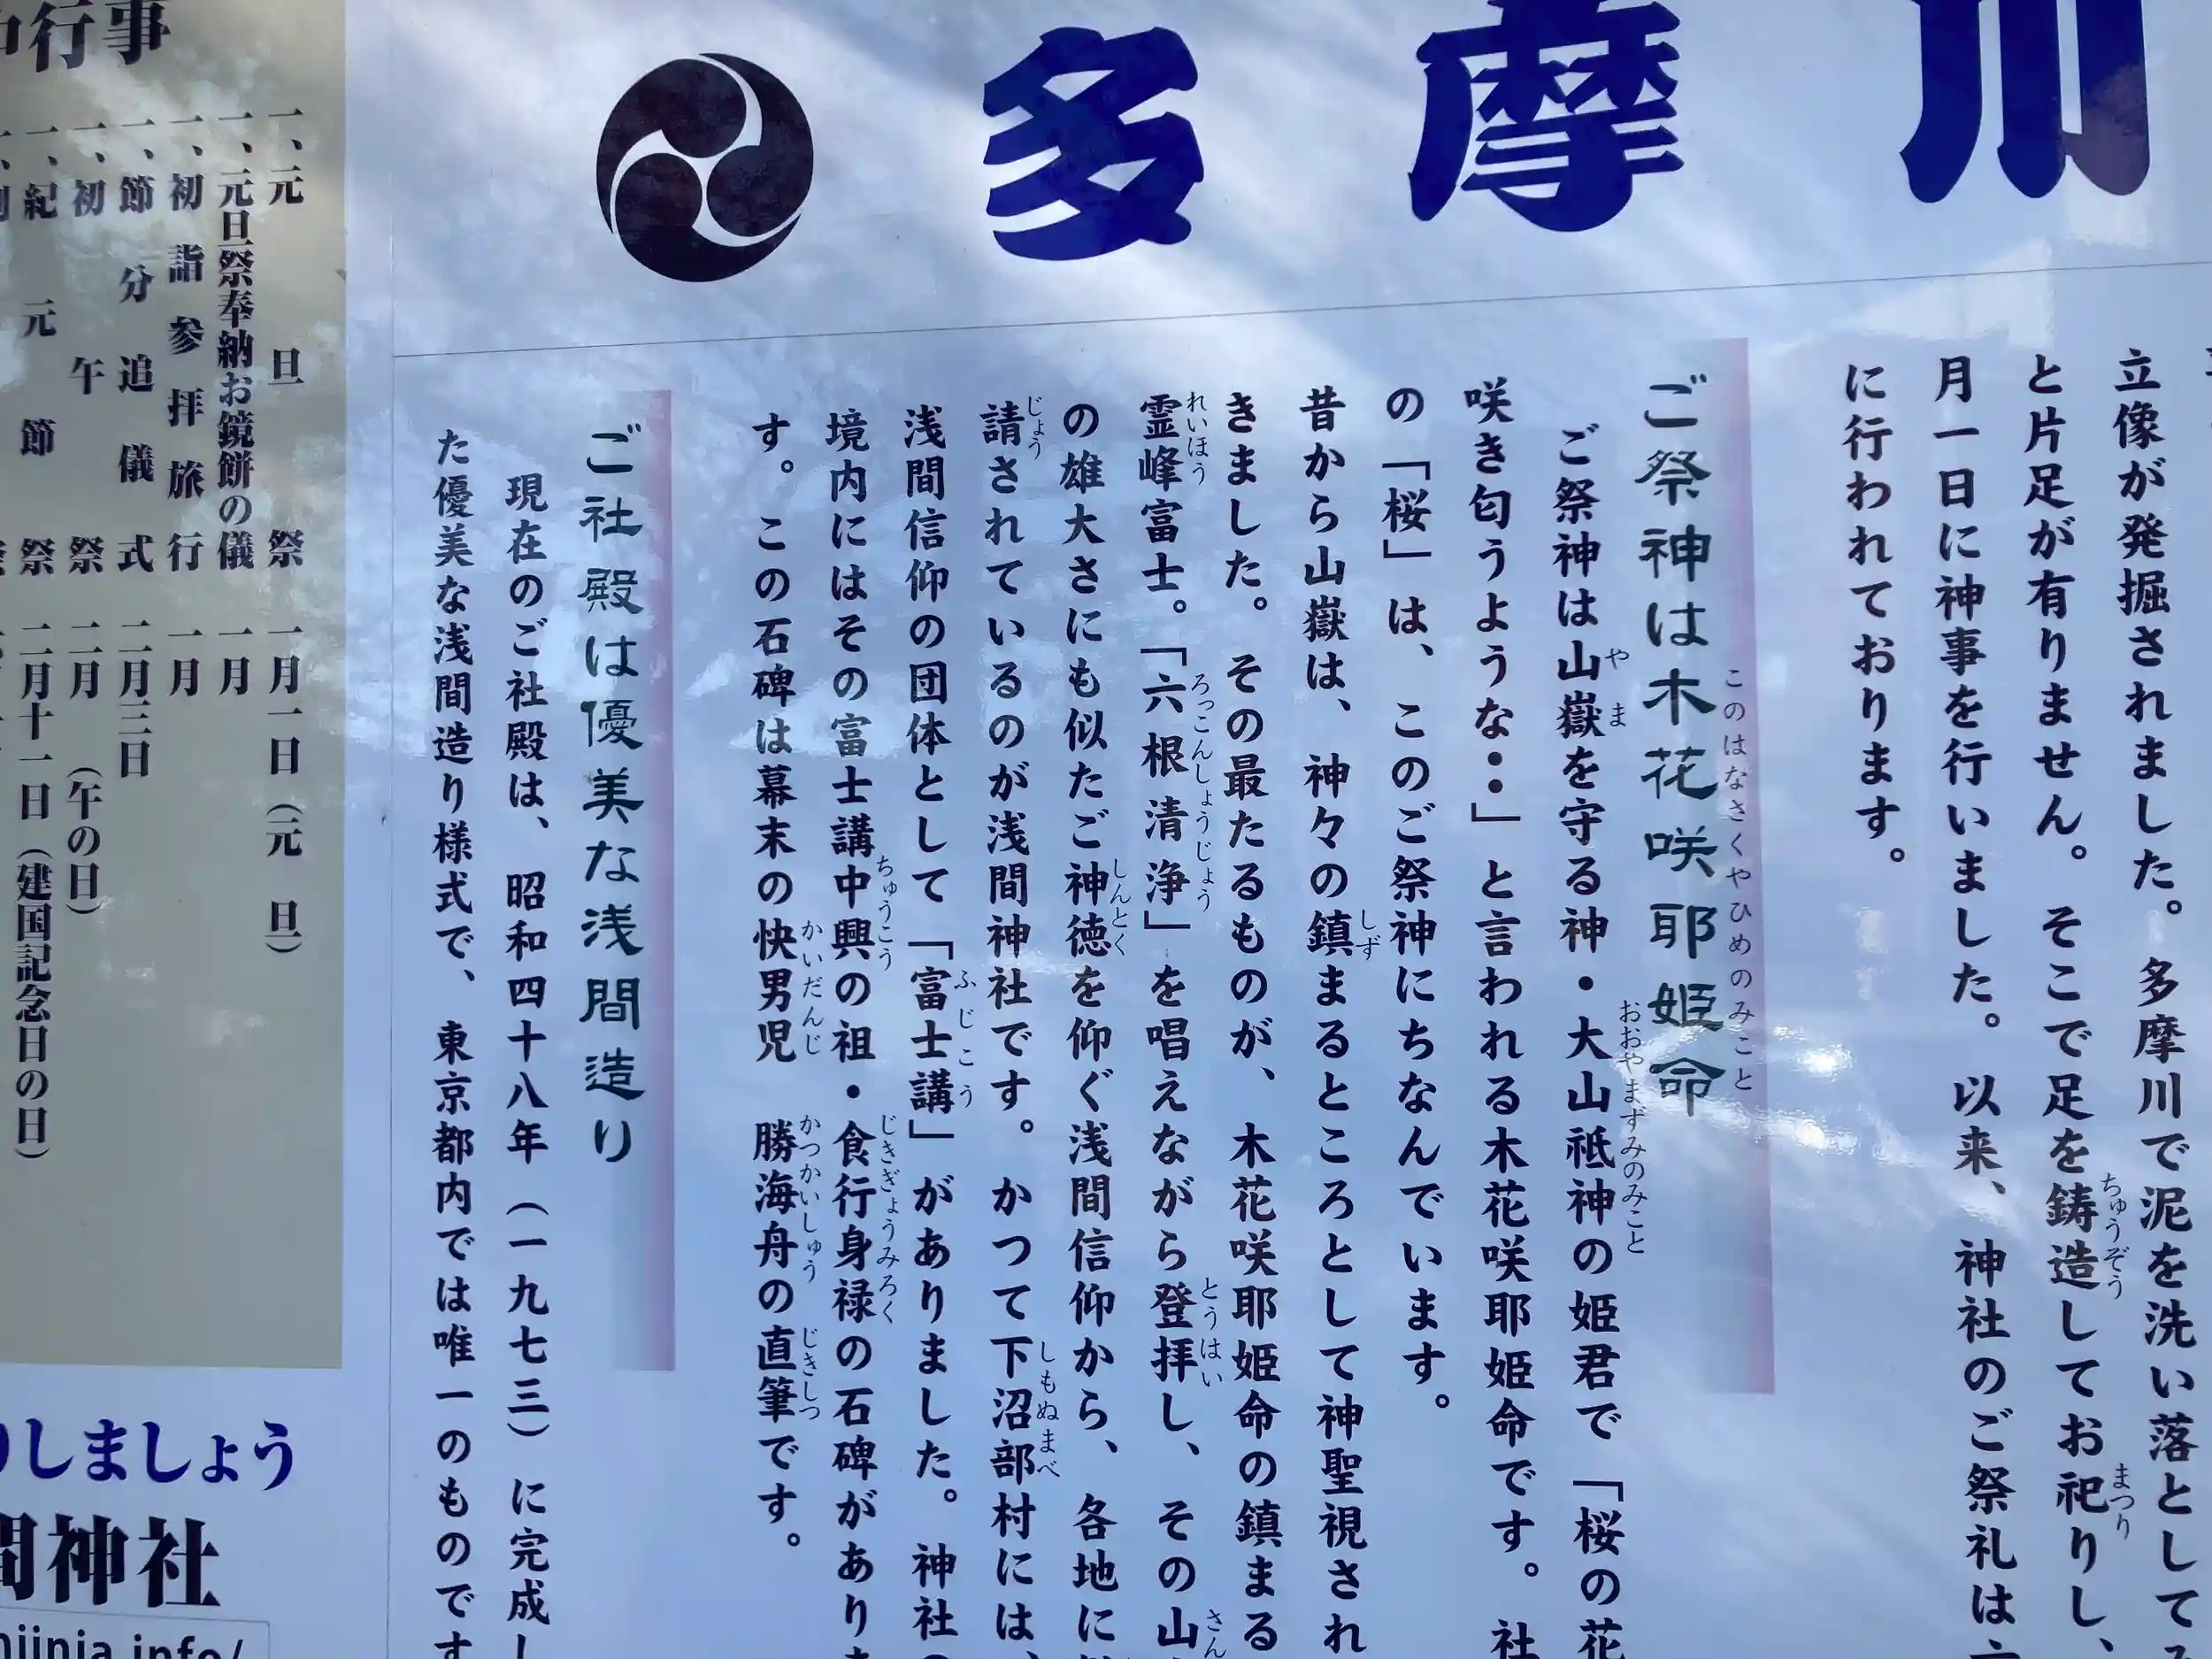 多摩川
立像が発掘されました。多摩川で泥を洗い落として
と片足が有りません。そこで足を鋳造してお祀りし、
月一日に神事を行いました。以来、神社のご祭礼は
に行われております。
ご祭神は木花咲耶姫命
ご祭神は山嶽を守る神・大山祗神の姫君で「桜の花
咲き匂うような・・」と言われる木花咲耶姫命です。社
の「桜」は、このご祭神にちなんでいます。
昔から山嶽は、神々の鎮まるところとして神聖視され
きました。その最たるものが、木花咲耶姫命の鎮まる
霊峰富士。「六根清浄」を唱えながら登拝し、その山
の雄大さにも似たご神徳を仰ぐ浅間信仰から、各地に
請されているのが浅間神社です。かつて下沼部村には、
浅間信仰の団体として「富士講」がありました。神社の
境内にはその富士講中興の祖・食行身禄の石碑があり
す。この石碑は幕末の快男児 勝海舟の直筆です。
ご社殿は優美な浅間造り
現在のご社殿は、昭和四十八年（一九七三）に完成し
た優美な浅間造り様式で、東京都内では唯一のものです
行事
一、元旦祭 一月一日（元旦）
一、元旦祭奉納お鏡餅の儀 一月
一、初詣参拝旅行 一月
一、節分追儺式 二月三日
一、初午祭 二月（午の日）
一、紀元節祭 二月十一日（建国記念日の日）
りしましょう
間神社
njinja.info/